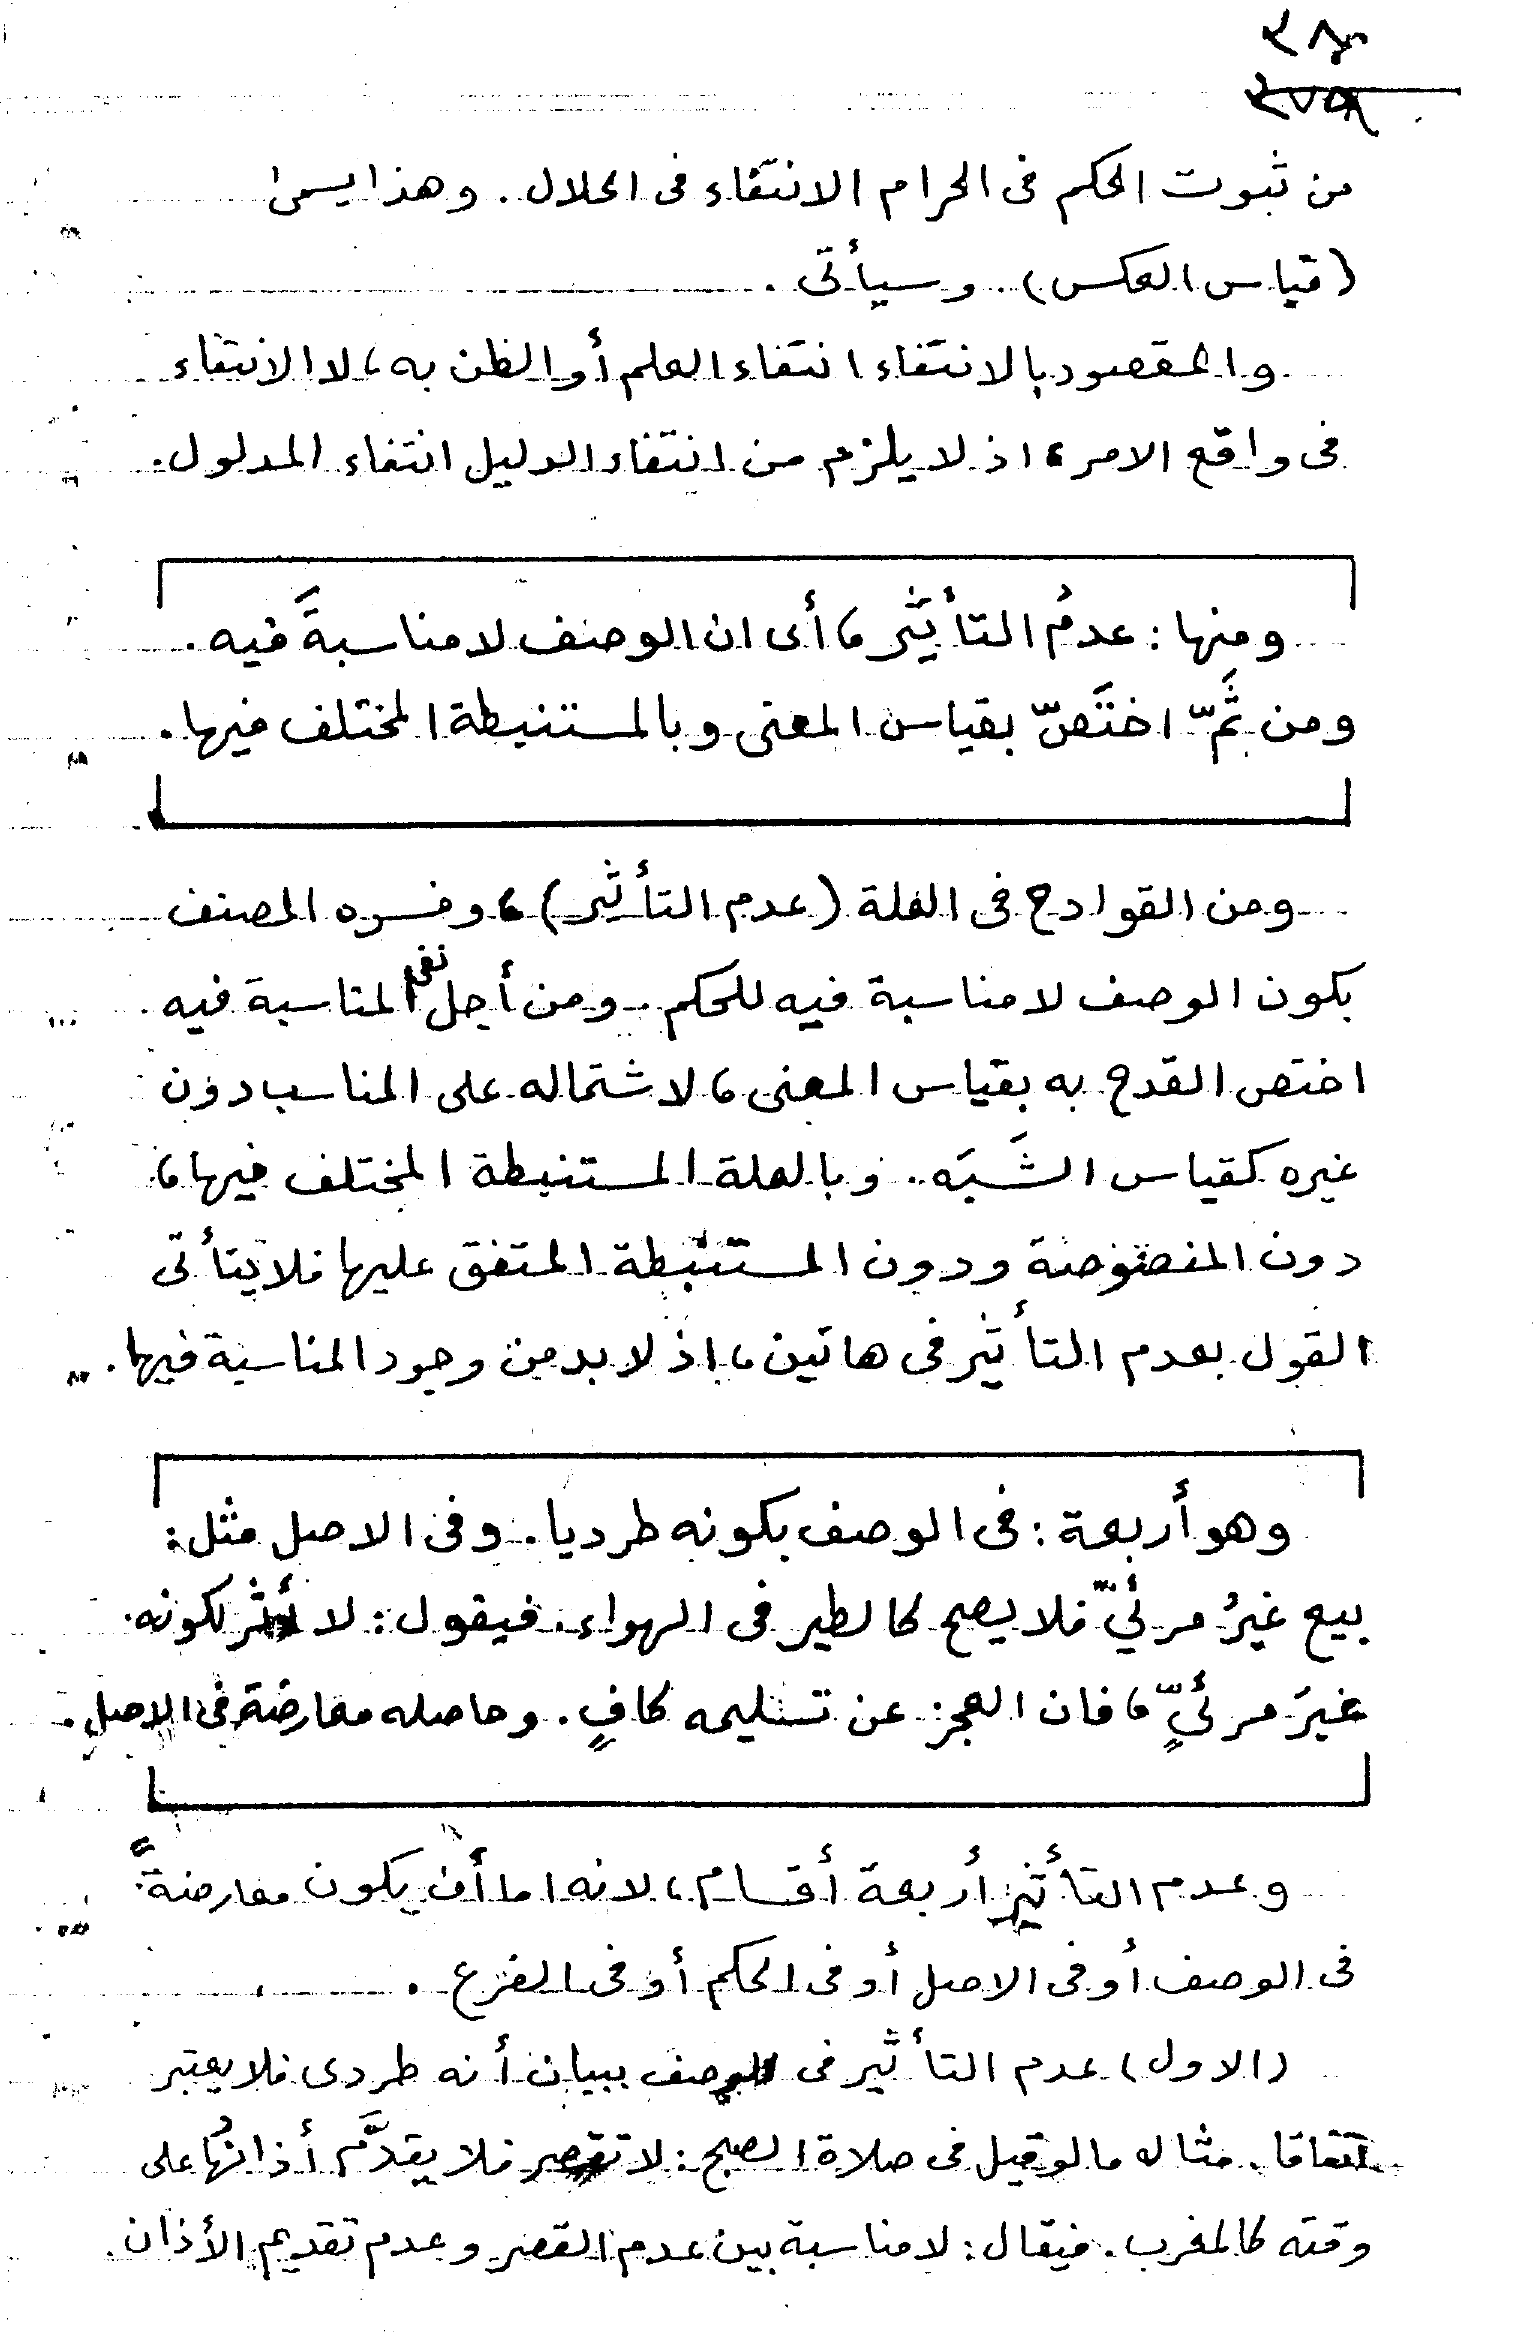 ٢٨٠
من ثبوت الحكم فى الحرام الانتفاء فى الحلال . وهذا يسمى
(قياس العكس) . وسيأتى .
والمقصود بالانتفاء انتفاء العلم أو الظن به، لا الانتفاء
فى واقع الامر، اذ لا يلزم من انتفاء الدليل انتفاء المدلول.
ومنها : عدمُ التأثير، أى ان الوصف لا مناسبةَ فيه .
ومن ثَمّ اختَصّ بقياس المعنى وبالمستنبطة المختلف فيها .
ومن القوادح فى العلة (عدم التأثير)، وفسره المصنف
بكون الوصف لا مناسبة فيه للحكم . ومن أجل نفى المناسبة فيه
اختص القدح به بقياس المعنى، لاشتماله على المناسب دون
غيره كقياس الشَبَه . وبالعلة المستنبطة المختلف فيها،
دون المنصوصة ودون المستنبطة المتفق عليها فلا يتأتى
القول بعدم التأثير فى هاتين، اذ لا بد من وجود المناسبة فيها .
وهو أربعة : فى الوصف بكونه طرديا . وفى الاصل مثل :
بيع غيرُ مرئيّ فلا يصح كالطير فى الهواء. فيقول : لا أثر لكونه
غيرَ مرئيٍّ، فان العجز عن تسليمه كافٍ . وحاصله معارضة فى الاصل .
وعدم التأثير أربعة أقسام، لانه اما أن يكون معارضةً
فى الوصف أو فى الاصل أو فى الحكم أو فى الفرع .
(الاول) عدم التأثير فى الوصف ببيان أنه طردى فلا يعتبر
اتفاقا . مثاله ما لو قيل فى صلاة الصبح : لا تقصر فلا يقدَّم أذانُها على
وقته كالمغرب . فيقال : لا مناسبة بين عدم القصر وعدم تقديم الأذان